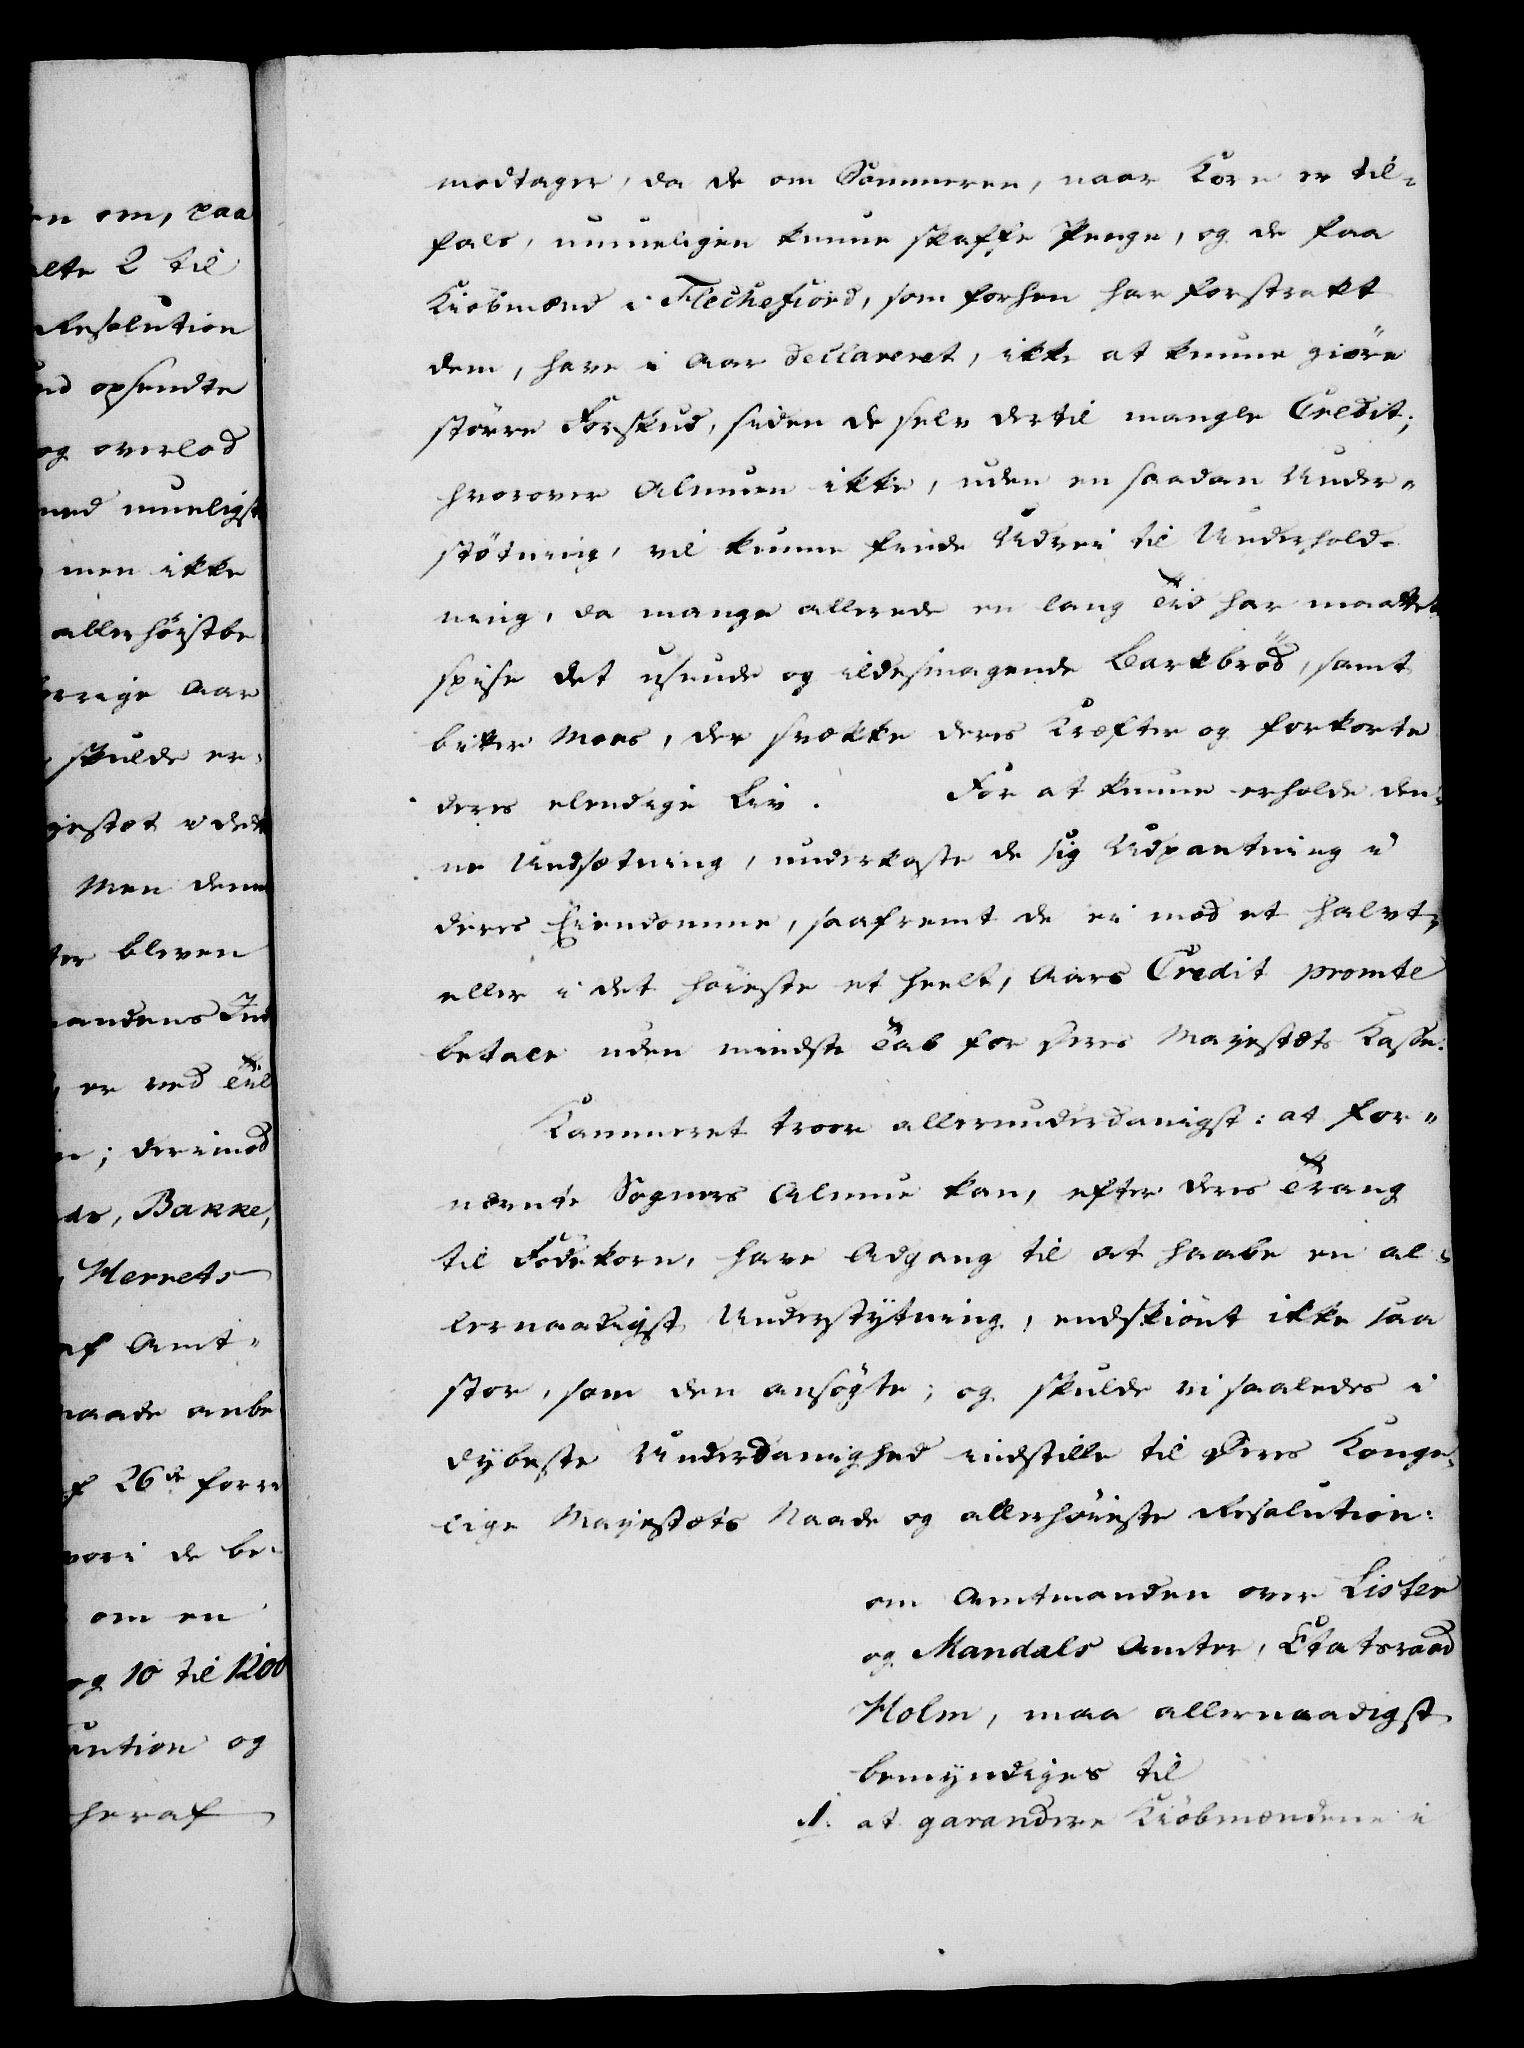 en om, paa
elte 2 til
Resolution
ud opsendte
og overlod
med mueligst
men ikke
allerhøistbe
orrige Aar
skulde er-
gestæt i dette
Men denne
ter bleven
mandens Ind
er ved Til
e; derimod
ds, Bakke,
Herrets
af Amt-
maade anbe
af 26de forri
vori de be-
om en
og 10 til 1200
aution og
heraf
modtager, da de om Sommeren, naar Korn er til-
fals, umueligen kunne skaffe Penge, og de faa
Kiöbmænd i Flechefiord, som forhen har forstrakt
dem, have i Aar declareret, ikke at kunne giöre
större Forskud, siden de selv dertil mangle Credit;
hvorover Almuen ikke, uden en saadan Under-
stötning, vil kunne finde Udvei til Underhold-
ning, da mange allerede en lang Tid har maattet
spise det usunde og ildesmagende Barkbröd, samt
bitter Moes, der svække deres Kræfter og forkorte
deres elendige Liv. For at kunne erholde den-
ne Undsætning, underkaste de sig Udpantning i
deres Eiendomme, saafremt de ei mod et halvt,
eller i det höieste et heelt, Aars Credit promte
betale uden mindste Tab for Deres Majestæts Kasse.
Kammeret troer allerunderdanigst: at for-
nævnte Sognes Almue kan, efter deres Trang
til Födekorn, have Adgang til at haabe en al-
lernaadigst Understytning, endskiönt ikke saa
stor, som den ansögte; og skulde vi saaledes i
dybeste Underdanighed indstille til Deres Konge-
lige Majestæts Naade og allerhöieste Resolution:
om Amtmanden over Lister
og Mandals Amter, Etatsraad
Holm, maa allernaadigst
bemyndiges til
1. at garandere Kiöbmændene i